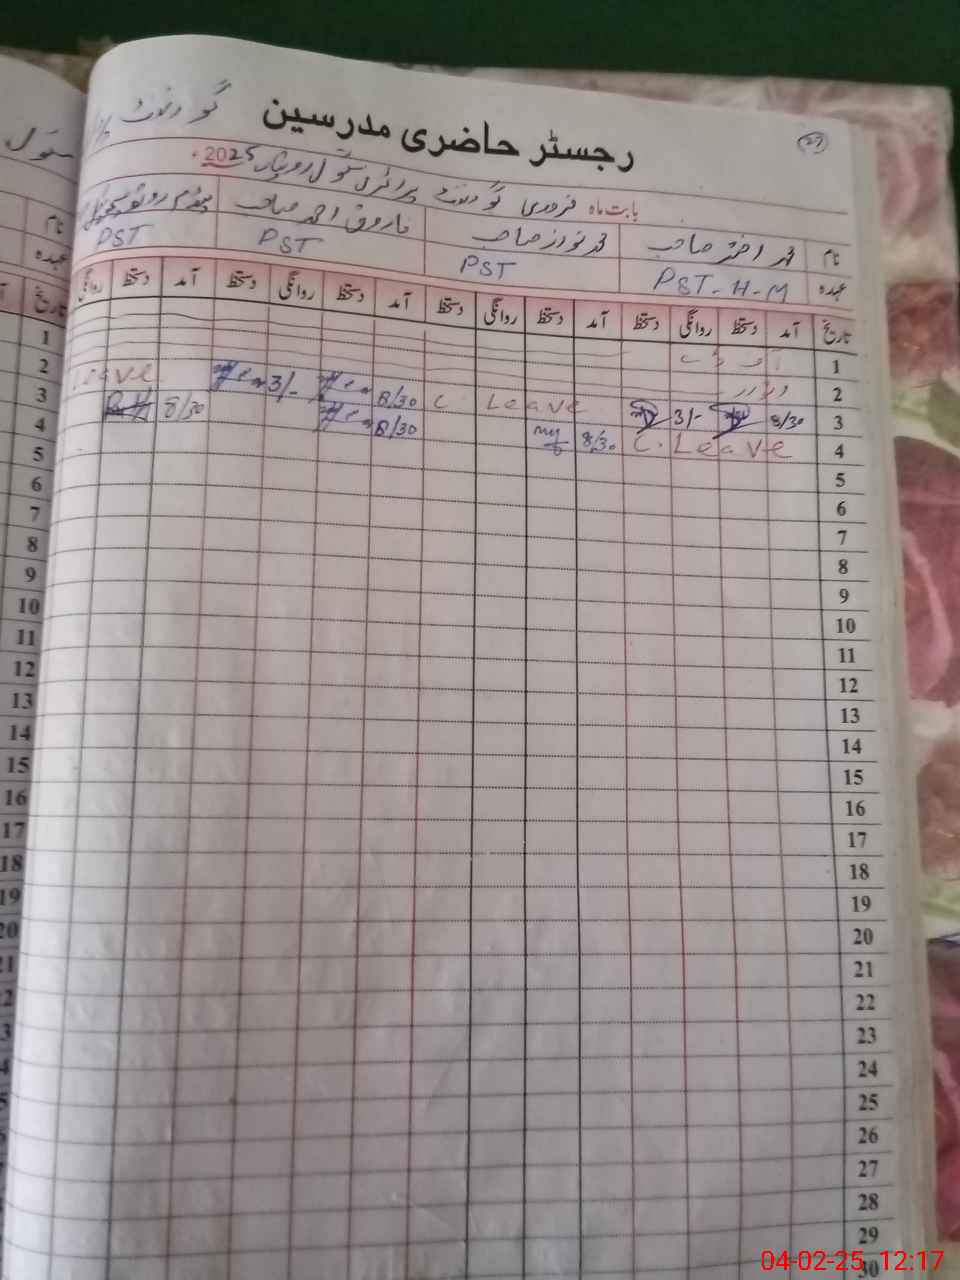 29
رجسٹر حاضری مدرسین
گورنمنٹ
بابت ماہ فروری گورنمنٹ پرائمری سکول 2025ء
نام محمد اختر صاحب محمد نواز صاحب فاروق احمد صاحب
عہدہ PST-H-M PST PST PST
تاریخ آمد دستخط روانگی دستخط آمد دستخط روانگی دستخط آمد دستخط روانگی دستخط آمد دستخط روانگی
1
2
3 8/30 3/- C Leave 8/30 3/- Leave
4 C. Leave 8/30 8/30 8/30
5
6
7
8
9
10
11
12
13
14
15
16
17
18
19
20
21
22
23
24
25
26
27
28
29
30
سکول
نام
عہدہ
تاریخ
1
2
3
4
5
6
7
8
9
10
11
12
13
14
15
16
17
18
19
20
04-02-25 12:17